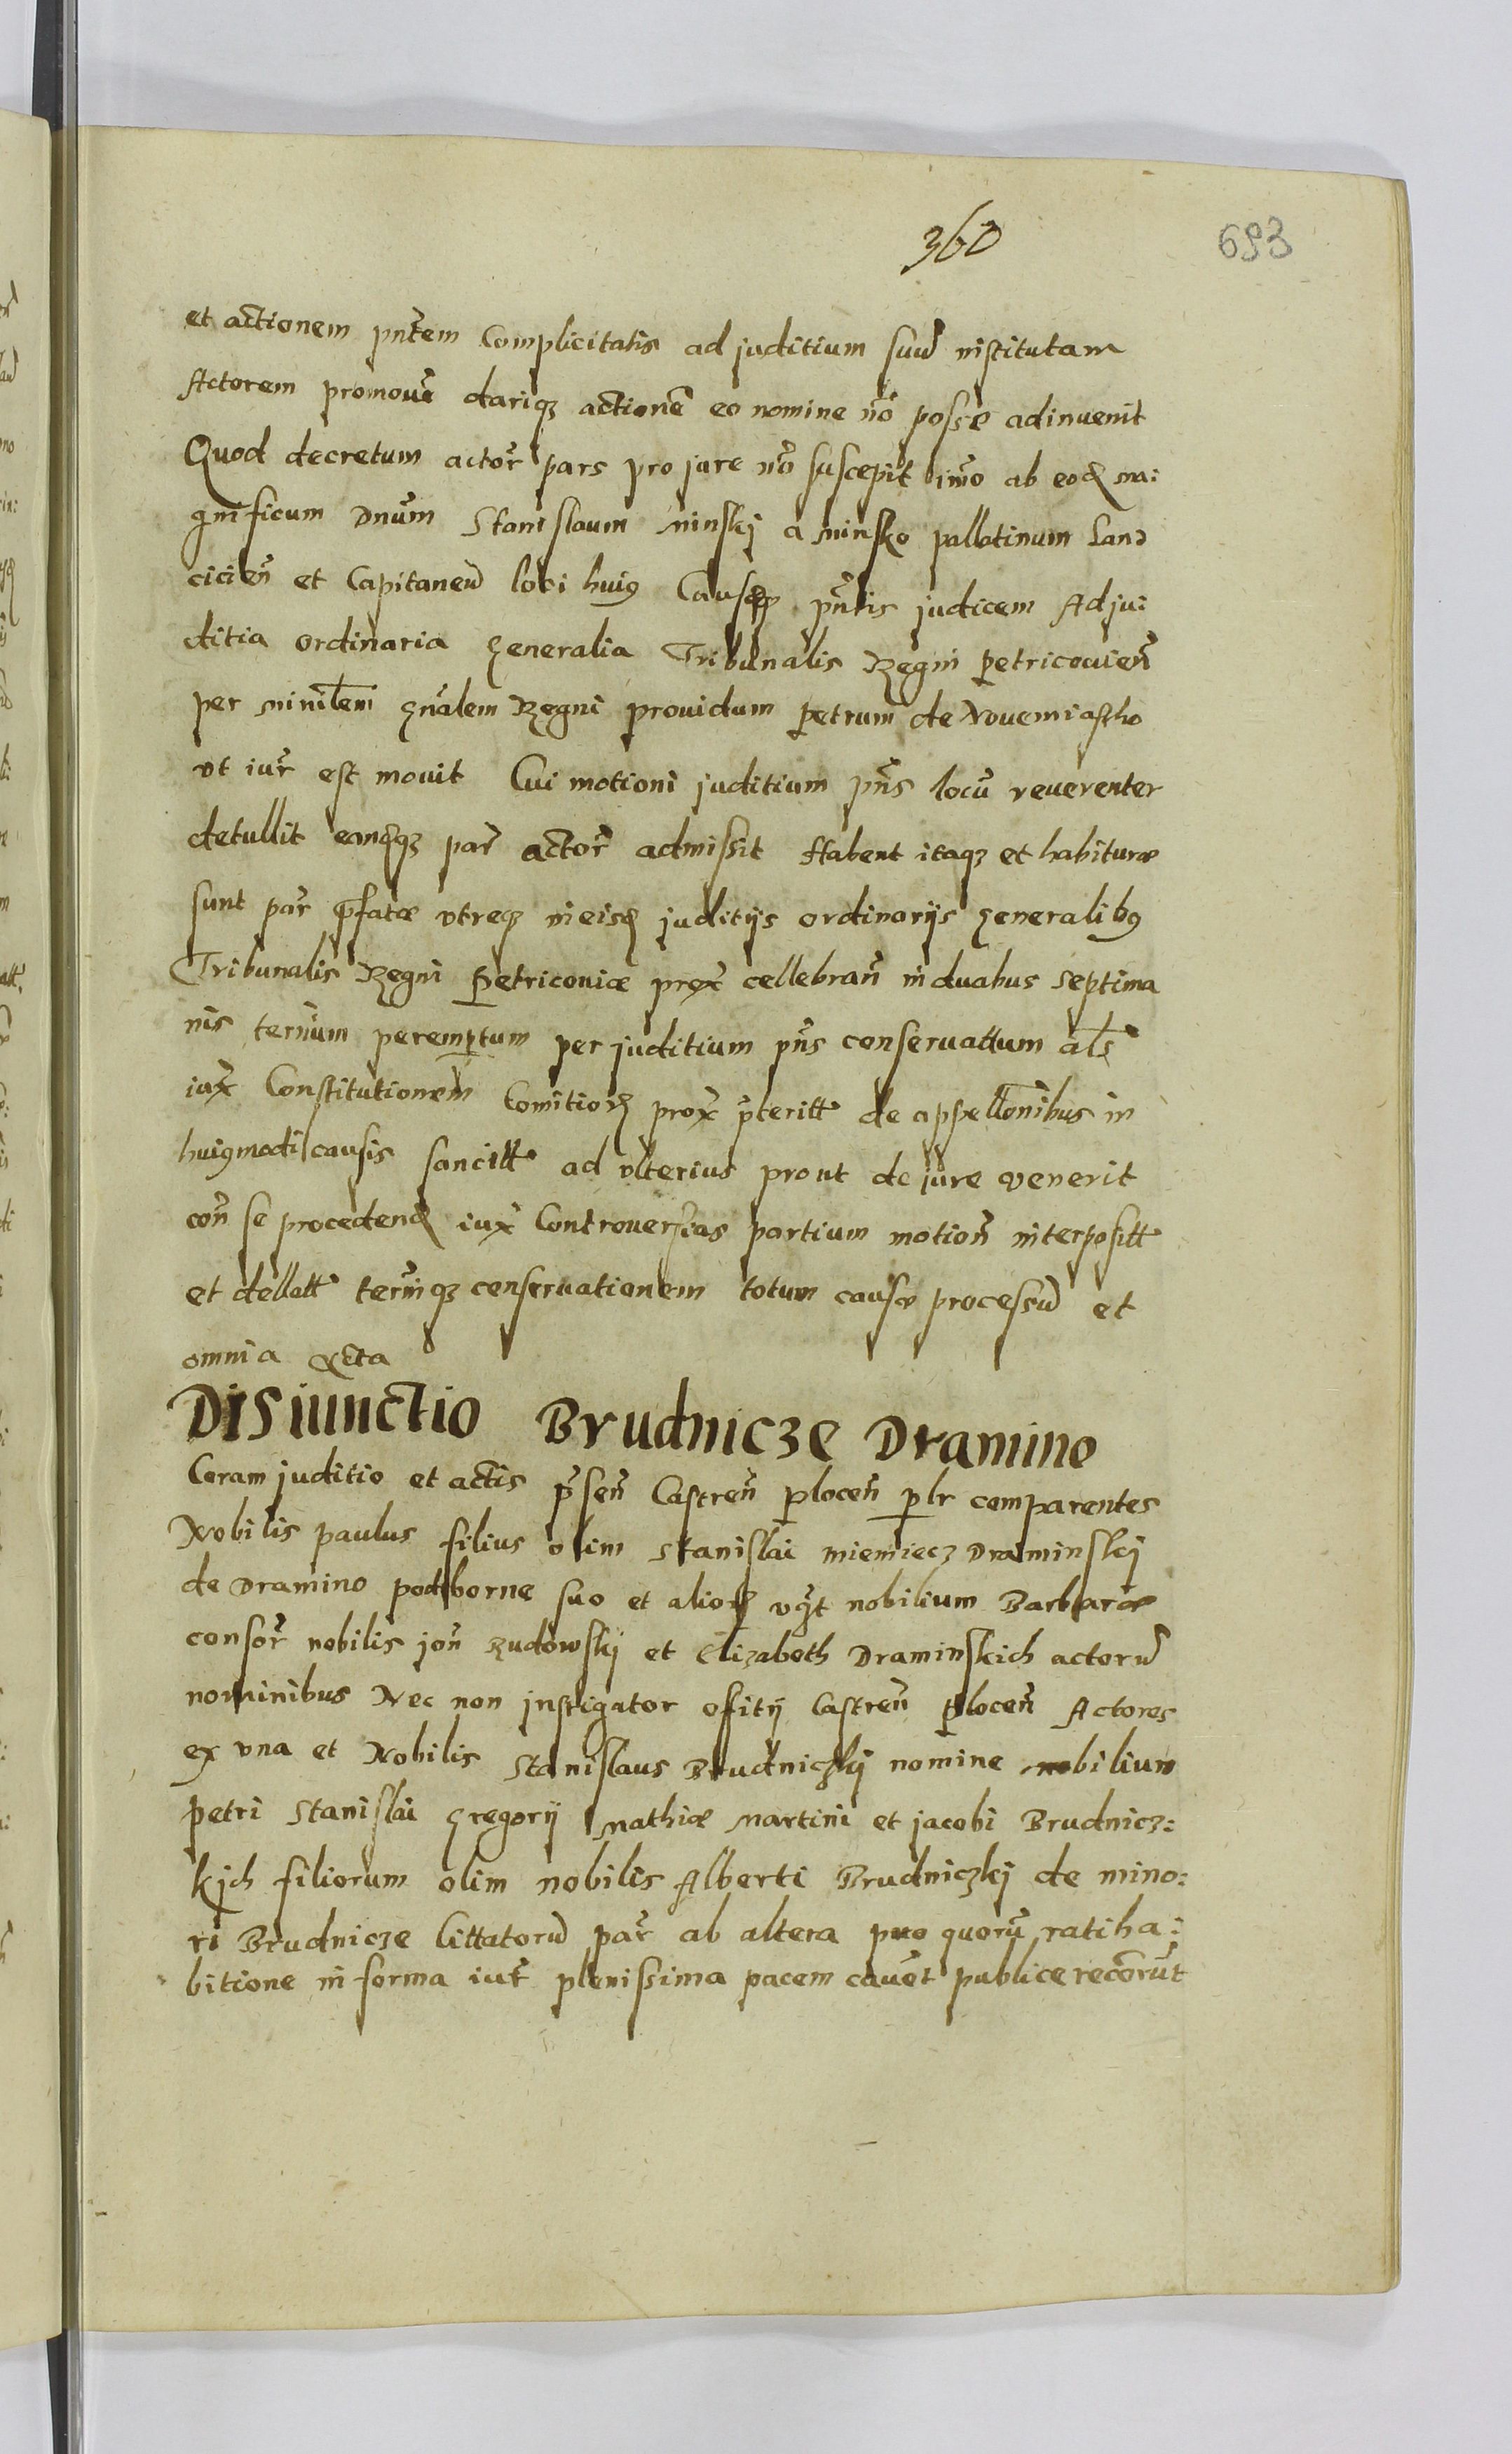 360
693
et actionem pñtem Complicitatis ad juditium suũ institutam
Actorem promovẽ dariqꝫ actionẽ eo nomine nõ posse adinuenit
Quod decretum actor̃ pars pro jure nõ suscepit im̃o ab eod ma:
gnificum Dnũm Stanislaum Minskj a Minsko pallatinum Lan
cicien̄ et Capitaneũ loci huiꝰ Causæ pñtis judicem Ad ju:
ditia ordinaria generalia Tribunalis Regni Petricouien̄
per Minilem̄ gnãlem Regni prouidum Petrum de Nouemiasto
vt iur̃ est mouit Cui motioni juditium pñs locũ reuerenter
detullit eandqꝫ par̃ actor̃ admissit Habent itaqꝫ et habituræ
sunt par̃ p̄fatæ vtreqꝫ in eisd juditijs ordinarijs generalibꝰ
Tribunalis Regni Petricouiæ prox̃ cellebran̄ in duabus septima
nis ter̃num peremptum per juditium pñs conseruattum al̃s
iux̃ Constitutionem Comitioꝝ prox̃ p̃teritt de appellõnibus in
huiꝰmodi causis sancitt ad vlterius prout de jure venerit
con̄ se procedend iux̃ Controuersias partium motion̄ interpositt
et dellatt ter̃miqꝫ conseruationem totum causæ processũ et
omnia acta
Disiunctio Brudnicze Dramino
Coram juditio et actis p̃sen̄ Castren̄ Plocen̄ plr comparentes
Nobilis paulus filius olim Stanislai Miemiecz Draminskj
de Dramino podborne suo et alioꝝ vt̃ nobilium Barbaræ
consor̃ nobilis jon̄ Rudowskij et Elizabeth Draminskich actorũ
nominibus Nec non jnstigator offitij Castren̄ Plocen̄ Actores
ex vna et Nobilis Stanislaus Brudniczkij nomine nobilium
Petri Stanislai Gregorij Mathiæ Martini et jacobi Brudnicz:
kjch filiorum olim nobilis Alberti Brudniczkj de mino:
ri Brudnicze littatorũ par̃ ab altera pro quorũ ratiha:
bitione in forma iur̃ plenissima pacem cauẽt publice recõrũt